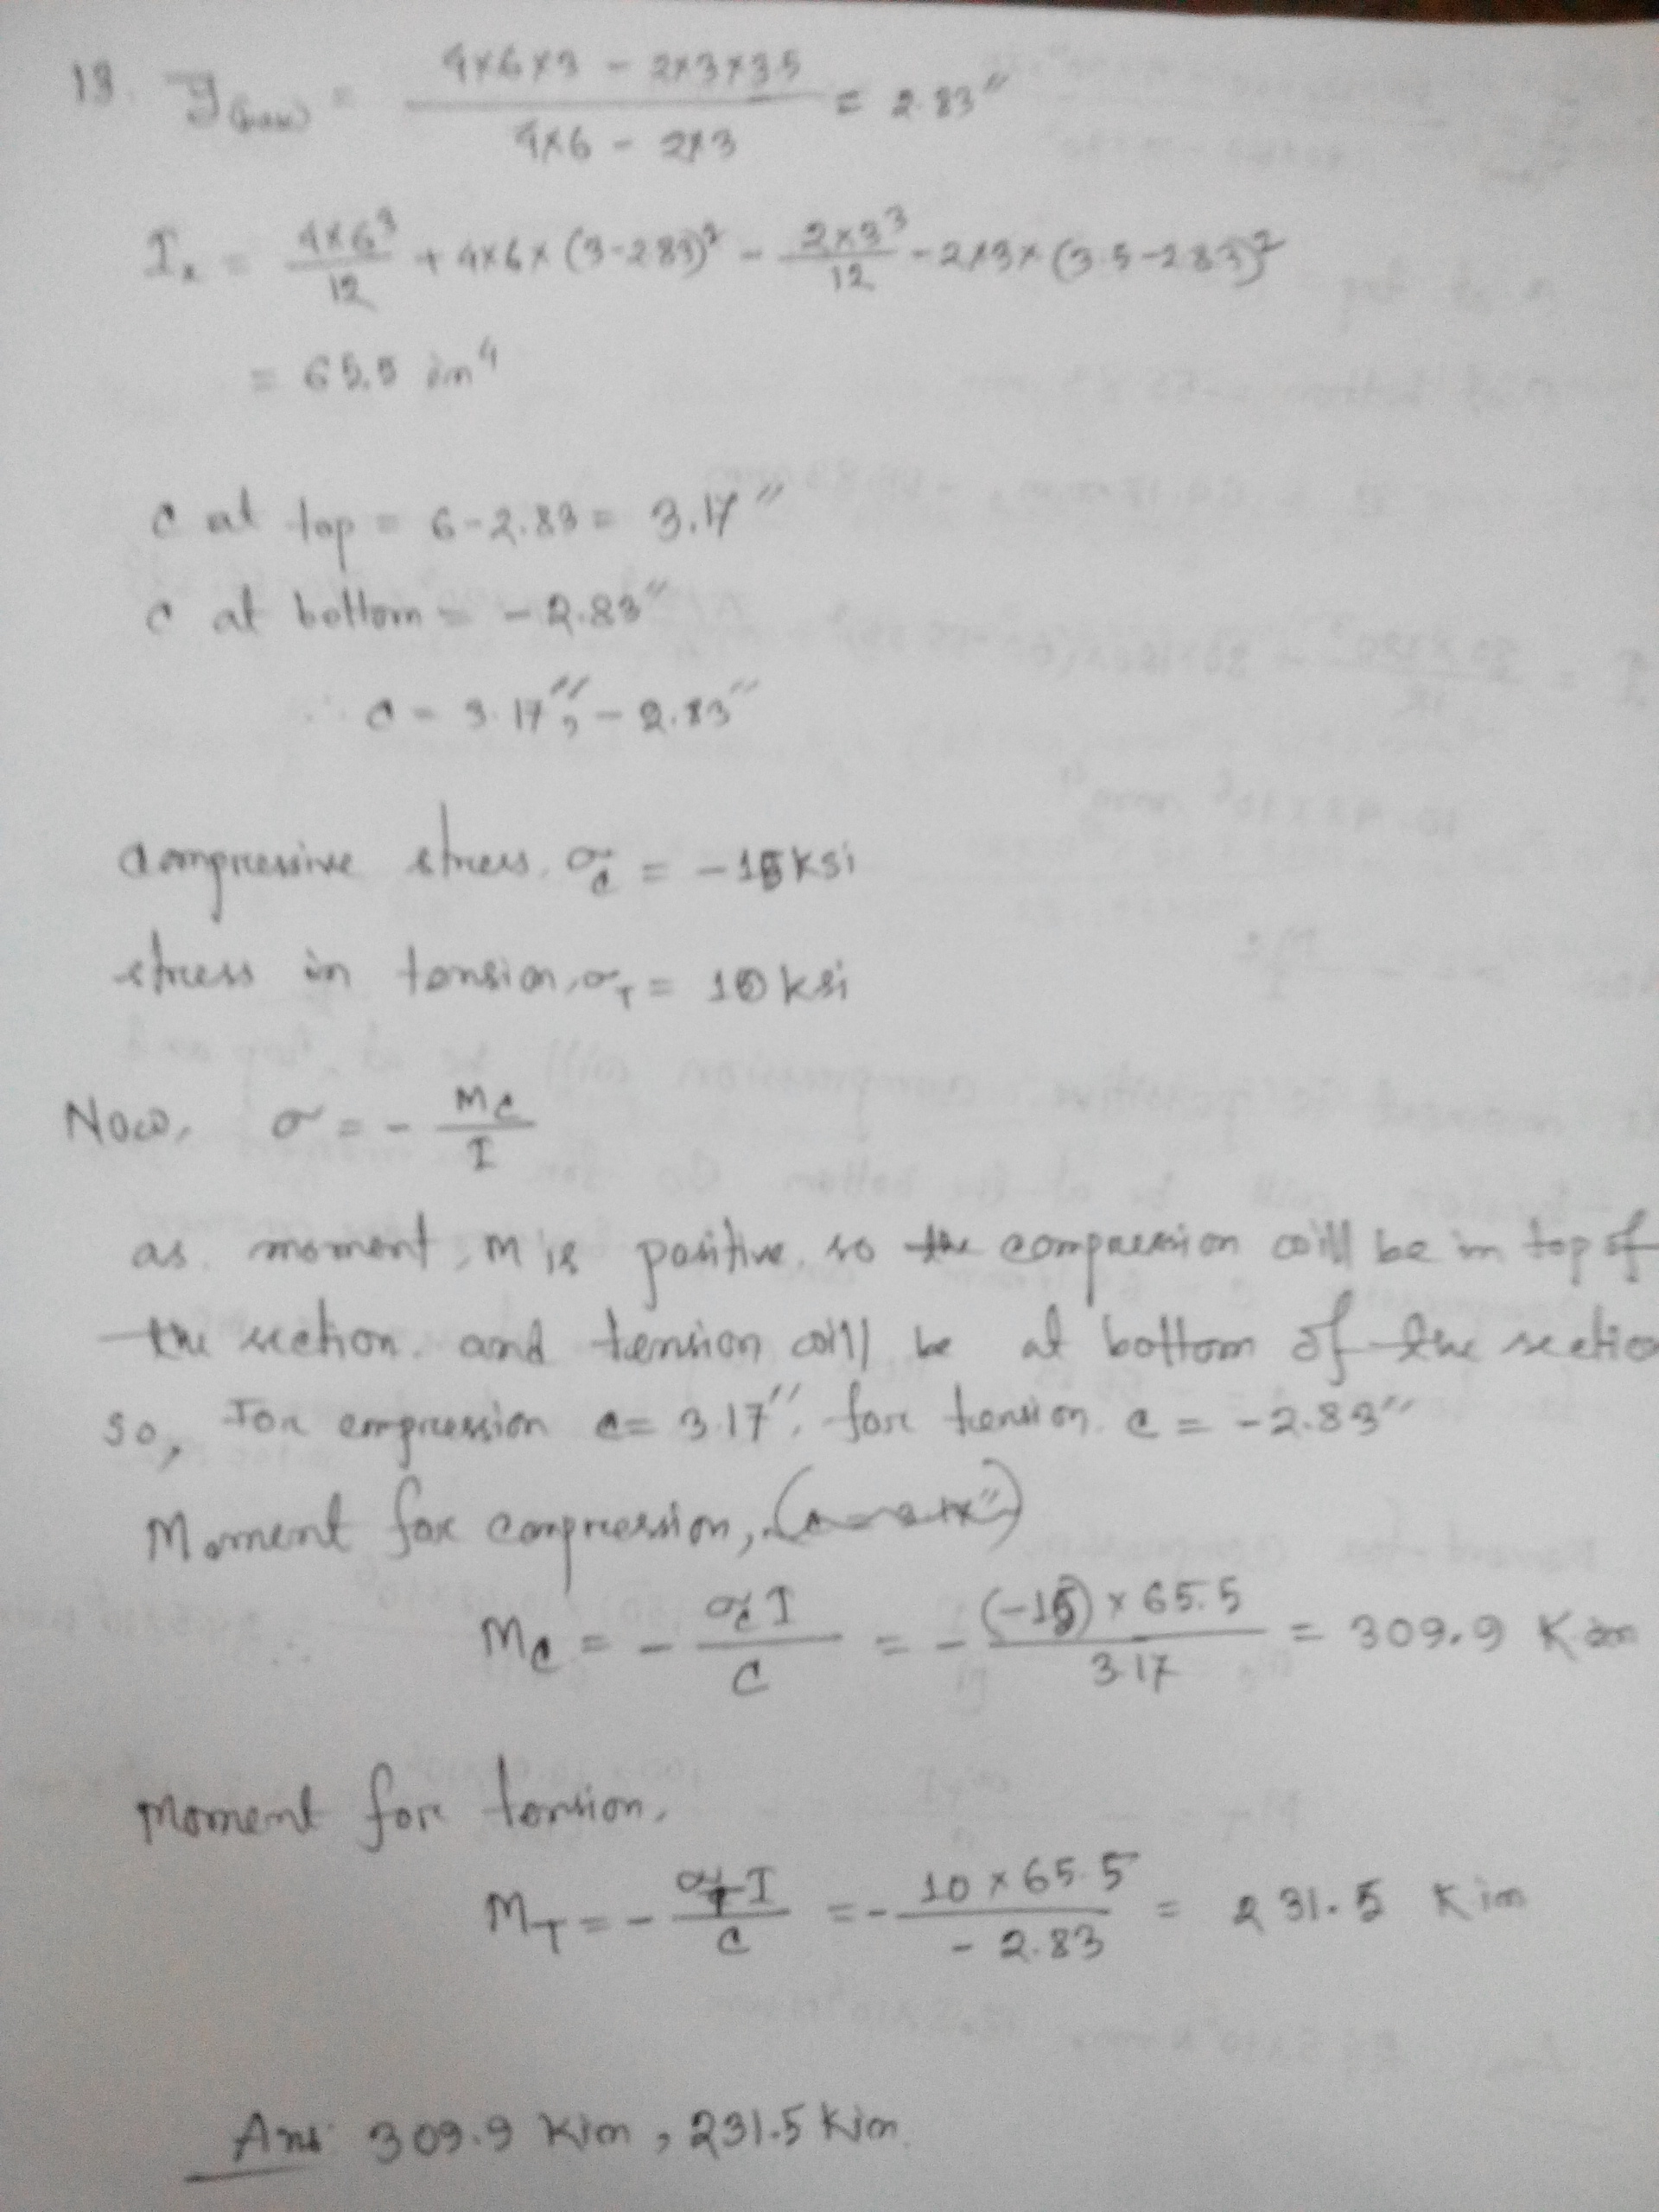 13. ȳ(base) = (4×6×3 - 2×3×3.5) / (4×6 - 2×3) = 2.83"
Ix = 4×6³/12 + 4×6×(3-2.83)² - 2×3³/12 - 2×3×(3.5-2.83)²
= 65.5 in⁴
c at top = 6-2.83 = 3.17"
c at bottom = -2.83"
∴ c = 3.17", -2.83"
compressive stress, σc = -15 ksi
stress in tension, σT = 10 ksi
Now, σ = - Mc/I
as moment, M is positive, so the compression will be in top of
the section. and tension will be at bottom of the section
so, For compression c = 3.17", for tension. c = -2.83"
Moment for compression,
Mc = - σcI/C = - (-15)×65.5/3.17 = 309.9 Kin
Moment for tension,
MT = - σTI/c = - 10×65.5/-2.83 = 231.5 Kin
Ans: 309.9 Kin, 231.5 Kin.